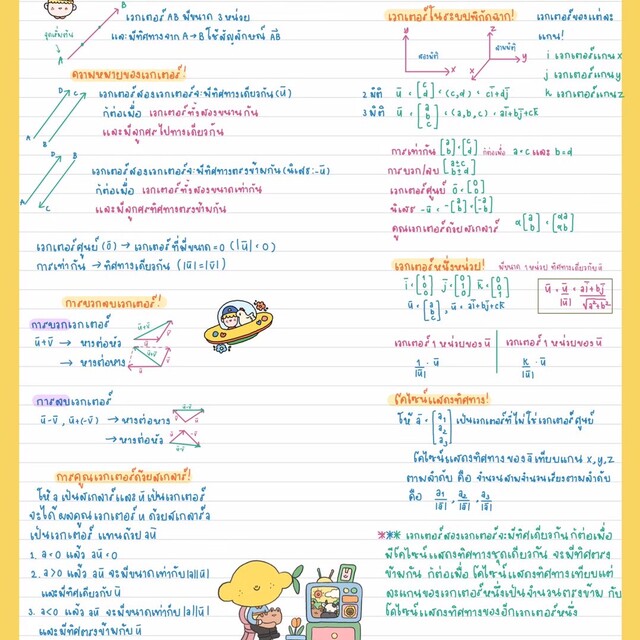 เวกเตอร์ AB มีขนาด 3 หน่วย
และมีทิศทางจาก A→B ใช้สัญลักษณ์ AB
จุดเริ่มต้น
A
B
ความหมายของเวกเตอร์!
D
C
A
B
เวกเตอร์สองเวกเตอร์จะมีทิศทางเดียวกัน (ū)
ก็ต่อเมื่อ เวกเตอร์ทั้งสองขนานกัน
และมีลูกศรไปทางเดียวกัน
D
B
A
C
เวกเตอร์สองเวกเตอร์จะมีทิศทางตรงข้ามกัน (นิเสธ:-ū)
ก็ต่อเมื่อ เวกเตอร์ทั้งสองขนาดเท่ากัน
และมีลูกศรทิศทางตรงข้ามกัน
เวกเตอร์ศูนย์ (ō) → เวกเตอร์ที่มีขนาด = 0 (|ū| = 0)
การเท่ากัน → ทิศทางเดียวกัน (|ū|=|v̄|)
การบวกลบเวกเตอร์!
การบวกเวกเตอร์
ū+v̄ → หางต่อหัว
→ หางต่อหาง
การลบเวกเตอร์
ū-v̄, ū+(-v̄) → หางต่อหาง
→ หางต่อหัว
การคูณเวกเตอร์ด้วยสเกลาร์!
ให้ a เป็นสเกลาร์และ ū เป็นเวกเตอร์
จะได้ ผลคูณเวกเตอร์ u ด้วยสเกลาร์ a
เป็นเวกเตอร์ แทนด้วย aū
1. a=0 แล้ว aū=0
2. a>0 แล้ว aū จะมีขนาดเท่ากับ |a||ū|
และมีทิศเดียวกับ ū
3. a<0 แล้ว aū จะมีขนาดเท่ากับ |a||ū|
และมีทิศตรงข้ามกับ ū
เวกเตอร์ในระบบพิกัดฉาก!
y
สองมิติ
x
z
สามมิติ
y
x
เวกเตอร์ของแต่ละ
แกน!
i เวกเตอร์แกน x
j เวกเตอร์แกน y
k เวกเตอร์แกน z
2 มิติ ū = [c d] = (c,d) = cī+dj̄
3 มิติ ū = [a b c] = (a,b,c) = aī+bj̄+ck̄
การเท่ากัน [a b] = [c d] ก็ต่อเมื่อ a=c และ b=d
การบวก/ลบ [a±c b±d]
เวกเตอร์ศูนย์ ō = [0 0]
นิเสธ -ū = -[a b] = [-a -b]
คูณเวกเตอร์ด้วยสเกลาร์ α[a b] = [αa αb]
เวกเตอร์หนึ่งหน่วย! มีขนาด 1 หน่วย ทิศเดียวกับ ū
ī = [1 0 0] j̄ = [0 1 0] k̄ = [0 0 1]
ū = [a b c], ū = aī+bj̄+ck̄
ū = ū/|ū| = aī+bj̄/√a²+b²
เวกเตอร์ 1 หน่วยของ ū
1/|ū| · ū
เวกเตอร์ 1 หน่วยของ ū
k/|ū| · ū
โคไซน์แสดงทิศทาง!
ให้ ā = [a₁ a₂ a₃] เป็นเวกเตอร์ที่ไม่ใช่เวกเตอร์ศูนย์
โคไซน์แสดงทิศทาง ของ ā เทียบแกน x,y,z
ตามลำดับ คือ จำนวนสามจำนวนเรียงตามลำดับ
คือ a₁/|ā|, a₂/|ā|, a₃/|ā|
*** เวกเตอร์สองเวกเตอร์จะมีทิศเดียวกัน ก็ต่อเมื่อ
มีโคไซน์แสดงทิศทางชุดเดียวกัน จะมีทิศตรง
ข้ามกัน ก็ต่อเมื่อ โคไซน์แสดงทิศทางเทียบแต่
ละแกนของเวกเตอร์หนึ่งเป็นจำนวนตรงข้าม กับ
โคไซน์แสดงทิศทางของอีกเวกเตอร์หนึ่ง